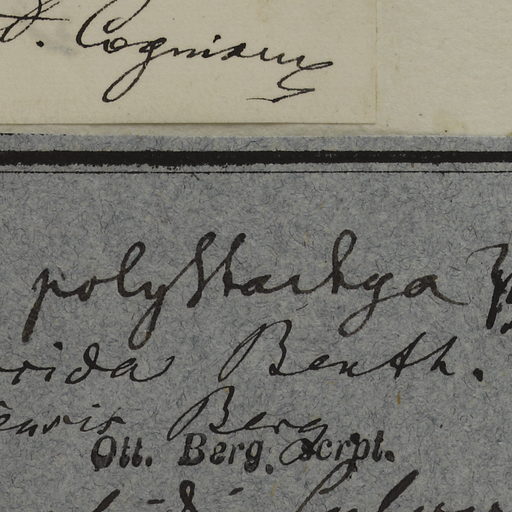 Cogniaux
polystachya
rida Benth.
ensis Berg
Ott. Berg. scrpt.